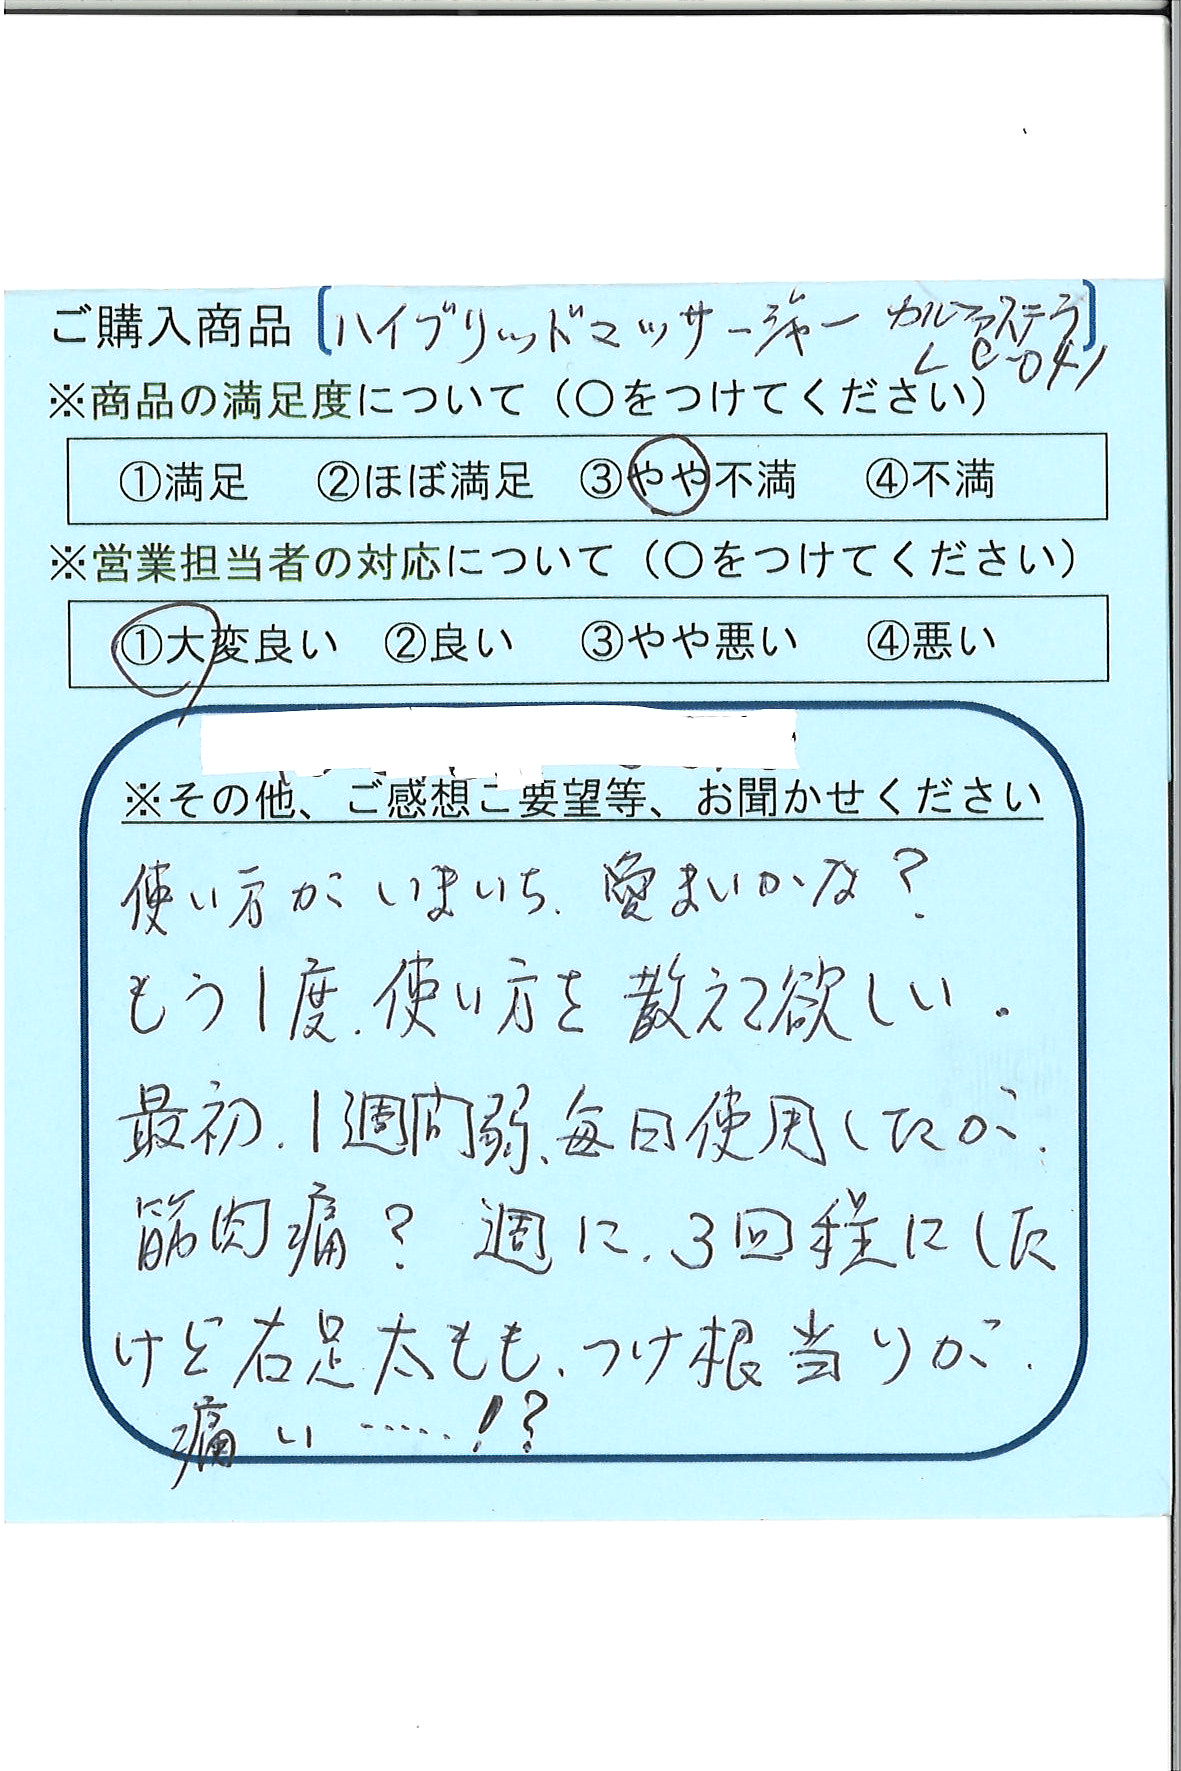 ご購入商品 [ハイブリッドマッサージャー カルファステラ]
LC-041
※商品の満足度について（○をつけてください）
①満足 ②ほぼ満足 ③やや不満 ④不満
※営業担当者の対応について（○をつけてください）
①大変良い ②良い ③やや悪い ④悪い
※その他、ご感想ご要望等、お聞かせください
使い方がいまいち、愛まいかな？
もう1度、使い方を教えて欲しい。
最初、1週間弱、毎日使用したが、
筋肉痛？ 週に、3回程にした
けど右足太もも、つけ根当りが、
痛い……!？